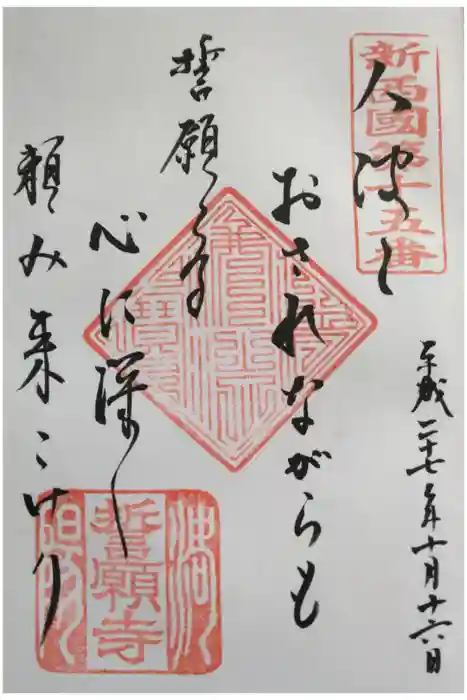 新西國第十五番
平成二十七年十月十六日
人波に
おされながらも
誓願寺
心に深く
頼み来にけり
誓願寺